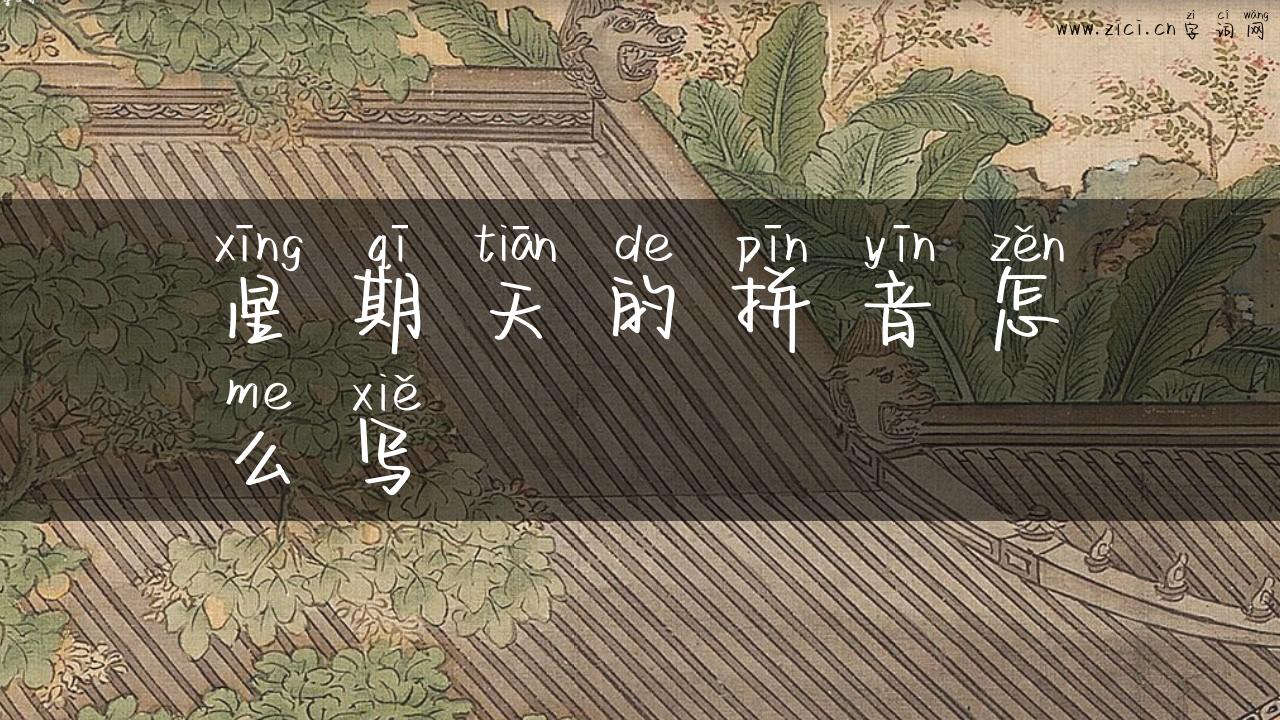 zì cí wǎng
www.zici.cn 字词网
xīng qī tiān de pīn yīn zěn
星期天的拼音怎
me xiě
么写